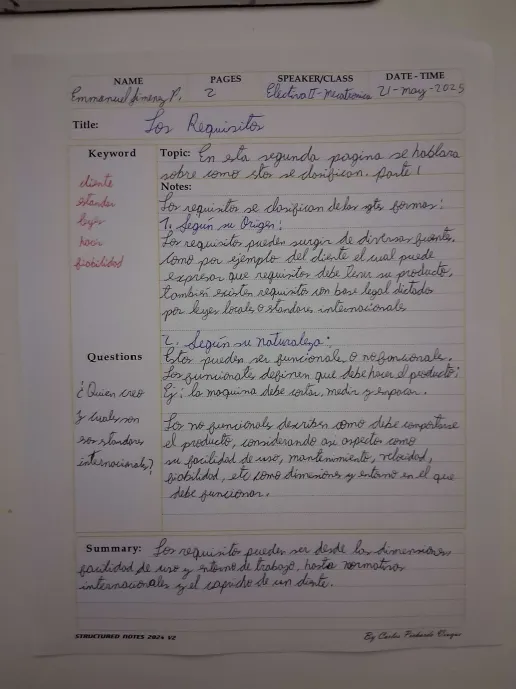 NAME PAGES SPEAKER/CLASS DATE - TIME
Emmanuel Jimenez P. 2 Electiva II - Mecatronica 21-may-2025
Title: Los Requisitos
Keyword
cliente
standar
leyes
hacer
fiabilidad
Topic: En esta segunda pagina se hablara
sobre como stos se clasifican. parte 1
Notes:
Los requisitos se clasifican de las sgts formas:
1. Según su Origen:
Los requisitos pueden surgir de diversas fuentes,
como por ejemplo del cliente el cual puede
expresar que requisitos debe tener su producto,
también existen requisitos con base legal dictados
por leyes locales o standares internacionales
2. Según su naturaleza:
Estos pueden ser funcionales o no funcionales.
Los funcionales definen que debe hacer el producto;
Ej: la maquina debe cortar, medir y empacar.
Los no funcionales describen como debe comportarse
el producto, considerando asi aspectos como
su facilidad de uso, mantenimiento, velocidad,
fiabilidad, etc como dimensiones y entorno en el que
debe funcionar.
Questions
¿Quien creo
y cuales son
sos standares
internacionales?
Summary: Los requisitos pueden ser desde las dimensiones
facilidad de uso y entorno de trabajo, hasta normativas
internacionales y el capricho de un cliente.
STRUCTURED NOTES 2024 V2
By Carlos Pichardo Vargas